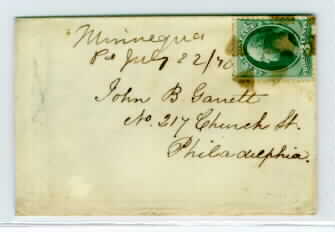 Minnequa
Pa July 22/70
John B. Garrett
No. 217 Church St.
Philadelphia.